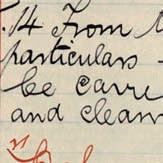 14 From
particulars
be carre
and clean